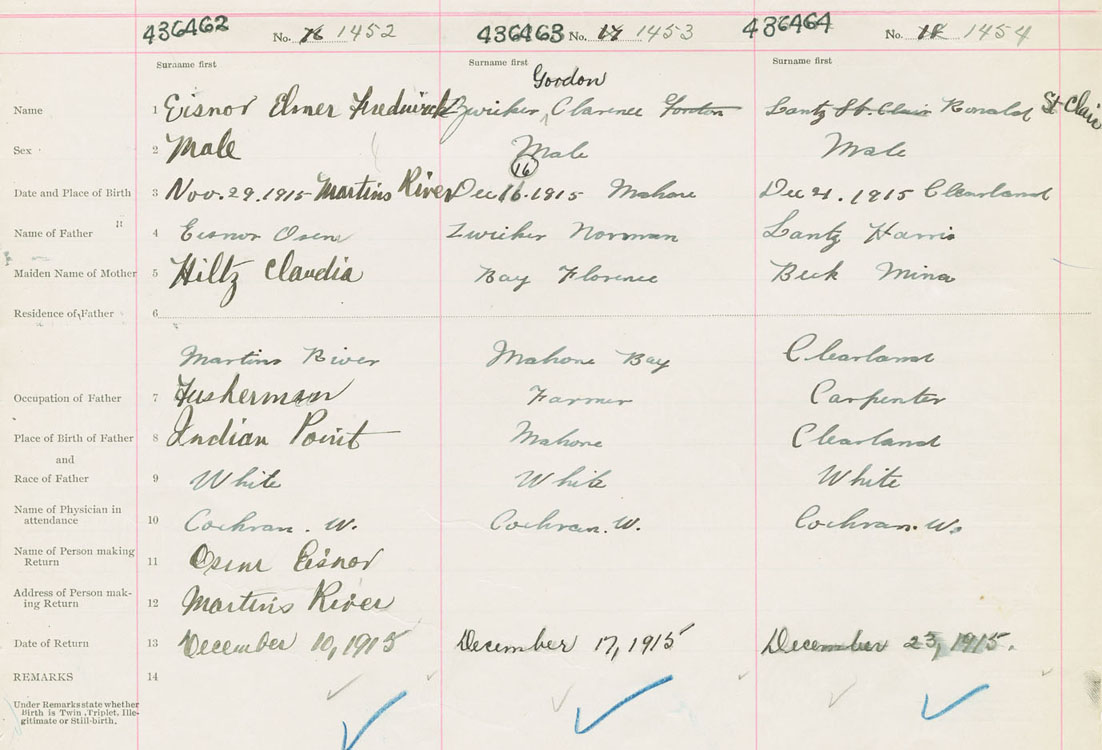 436462 No. 16 1452 436463 No. 17 1453 436464 No. 18 1454
Surname first Surname first Surname first
Gordon
Name 1 Eisnor Elmer Fredrick Zwicker Clarence Gordon Lantz St. Clair Ronald St Clair
Sex 2 Male Male Male
16
Date and Place of Birth 3 Nov. 29. 1915 Martins River Dec 16. 1915 Mahone Dec 21. 1915 Clearland
Name of Father 4 Eisnor Osens Zwicker Norman Lantz Harris
Maiden Name of Mother 5 Hiltz Claudia Bay Florence Beck Mina
Residence of Father 6
Martins River Mahone Bay Clearland
Occupation of Father 7 Fusherman Farmer Carpenter
Place of Birth of Father 8 Indian Point Mahone Clearland
and
Race of Father 9 White White White
Name of Physician in
attendance 10 Cochran. W. Cochran. W. Cochran. W.
Name of Person making
Return 11 Eisnor
Address of Person mak-
ing Return 12 Martins River
Date of Return 13 December 10, 1915 December 17, 1915 December 23, 1915.
REMARKS 14
Under Remarks state whether
Birth is Twin, Triplet, Ille-
gitimate or Still-birth.